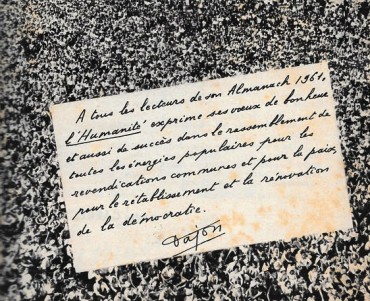 A tous les lecteurs de son Almanach 1961,
l'Humanité exprime ses vœux de bonheur
et aussi de succès dans le rassemblement de
toutes les énergies populaires pour les
revendications communes et pour la paix,
pour le rétablissement et la rénovation
de la démocratie.